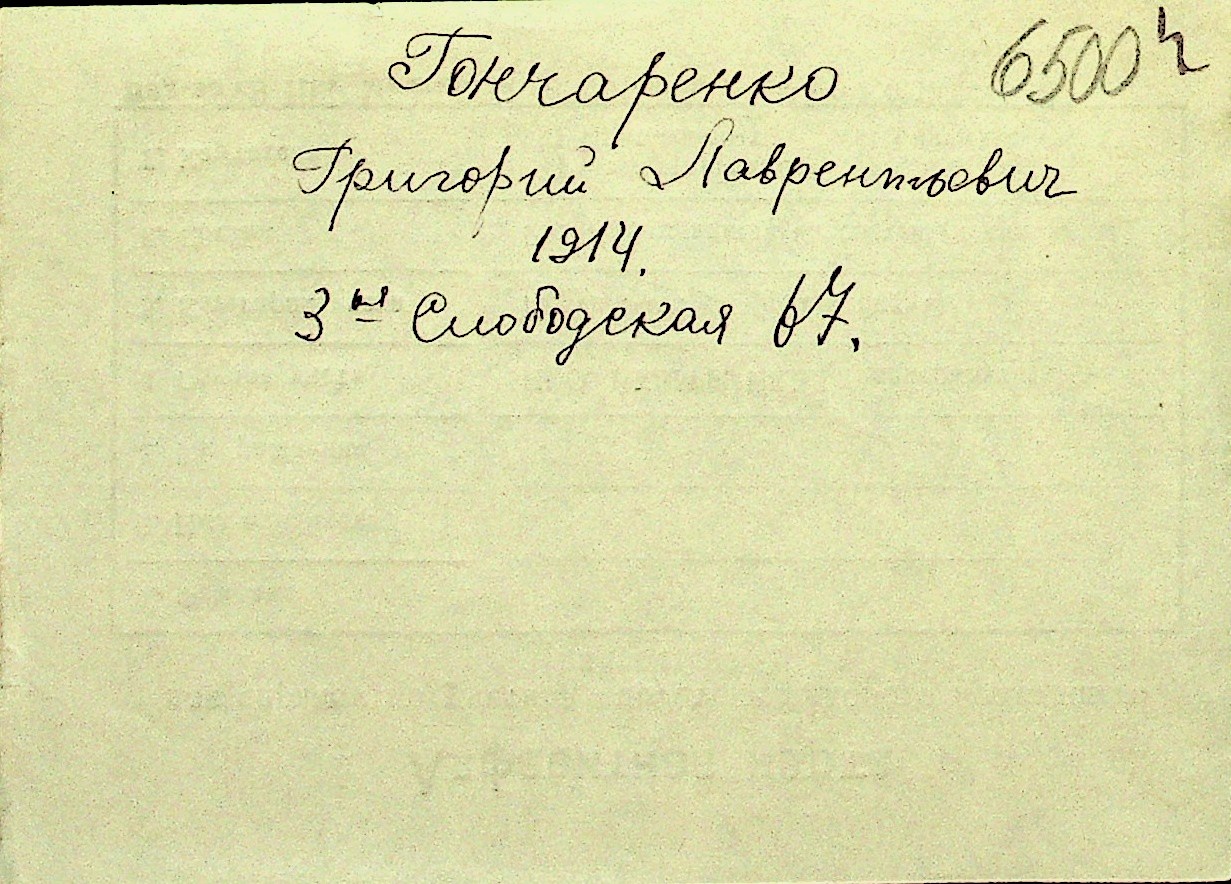 6500
Гончаренко
Григорий Лаврентьевич
1914.
3 ья Слободская 67.